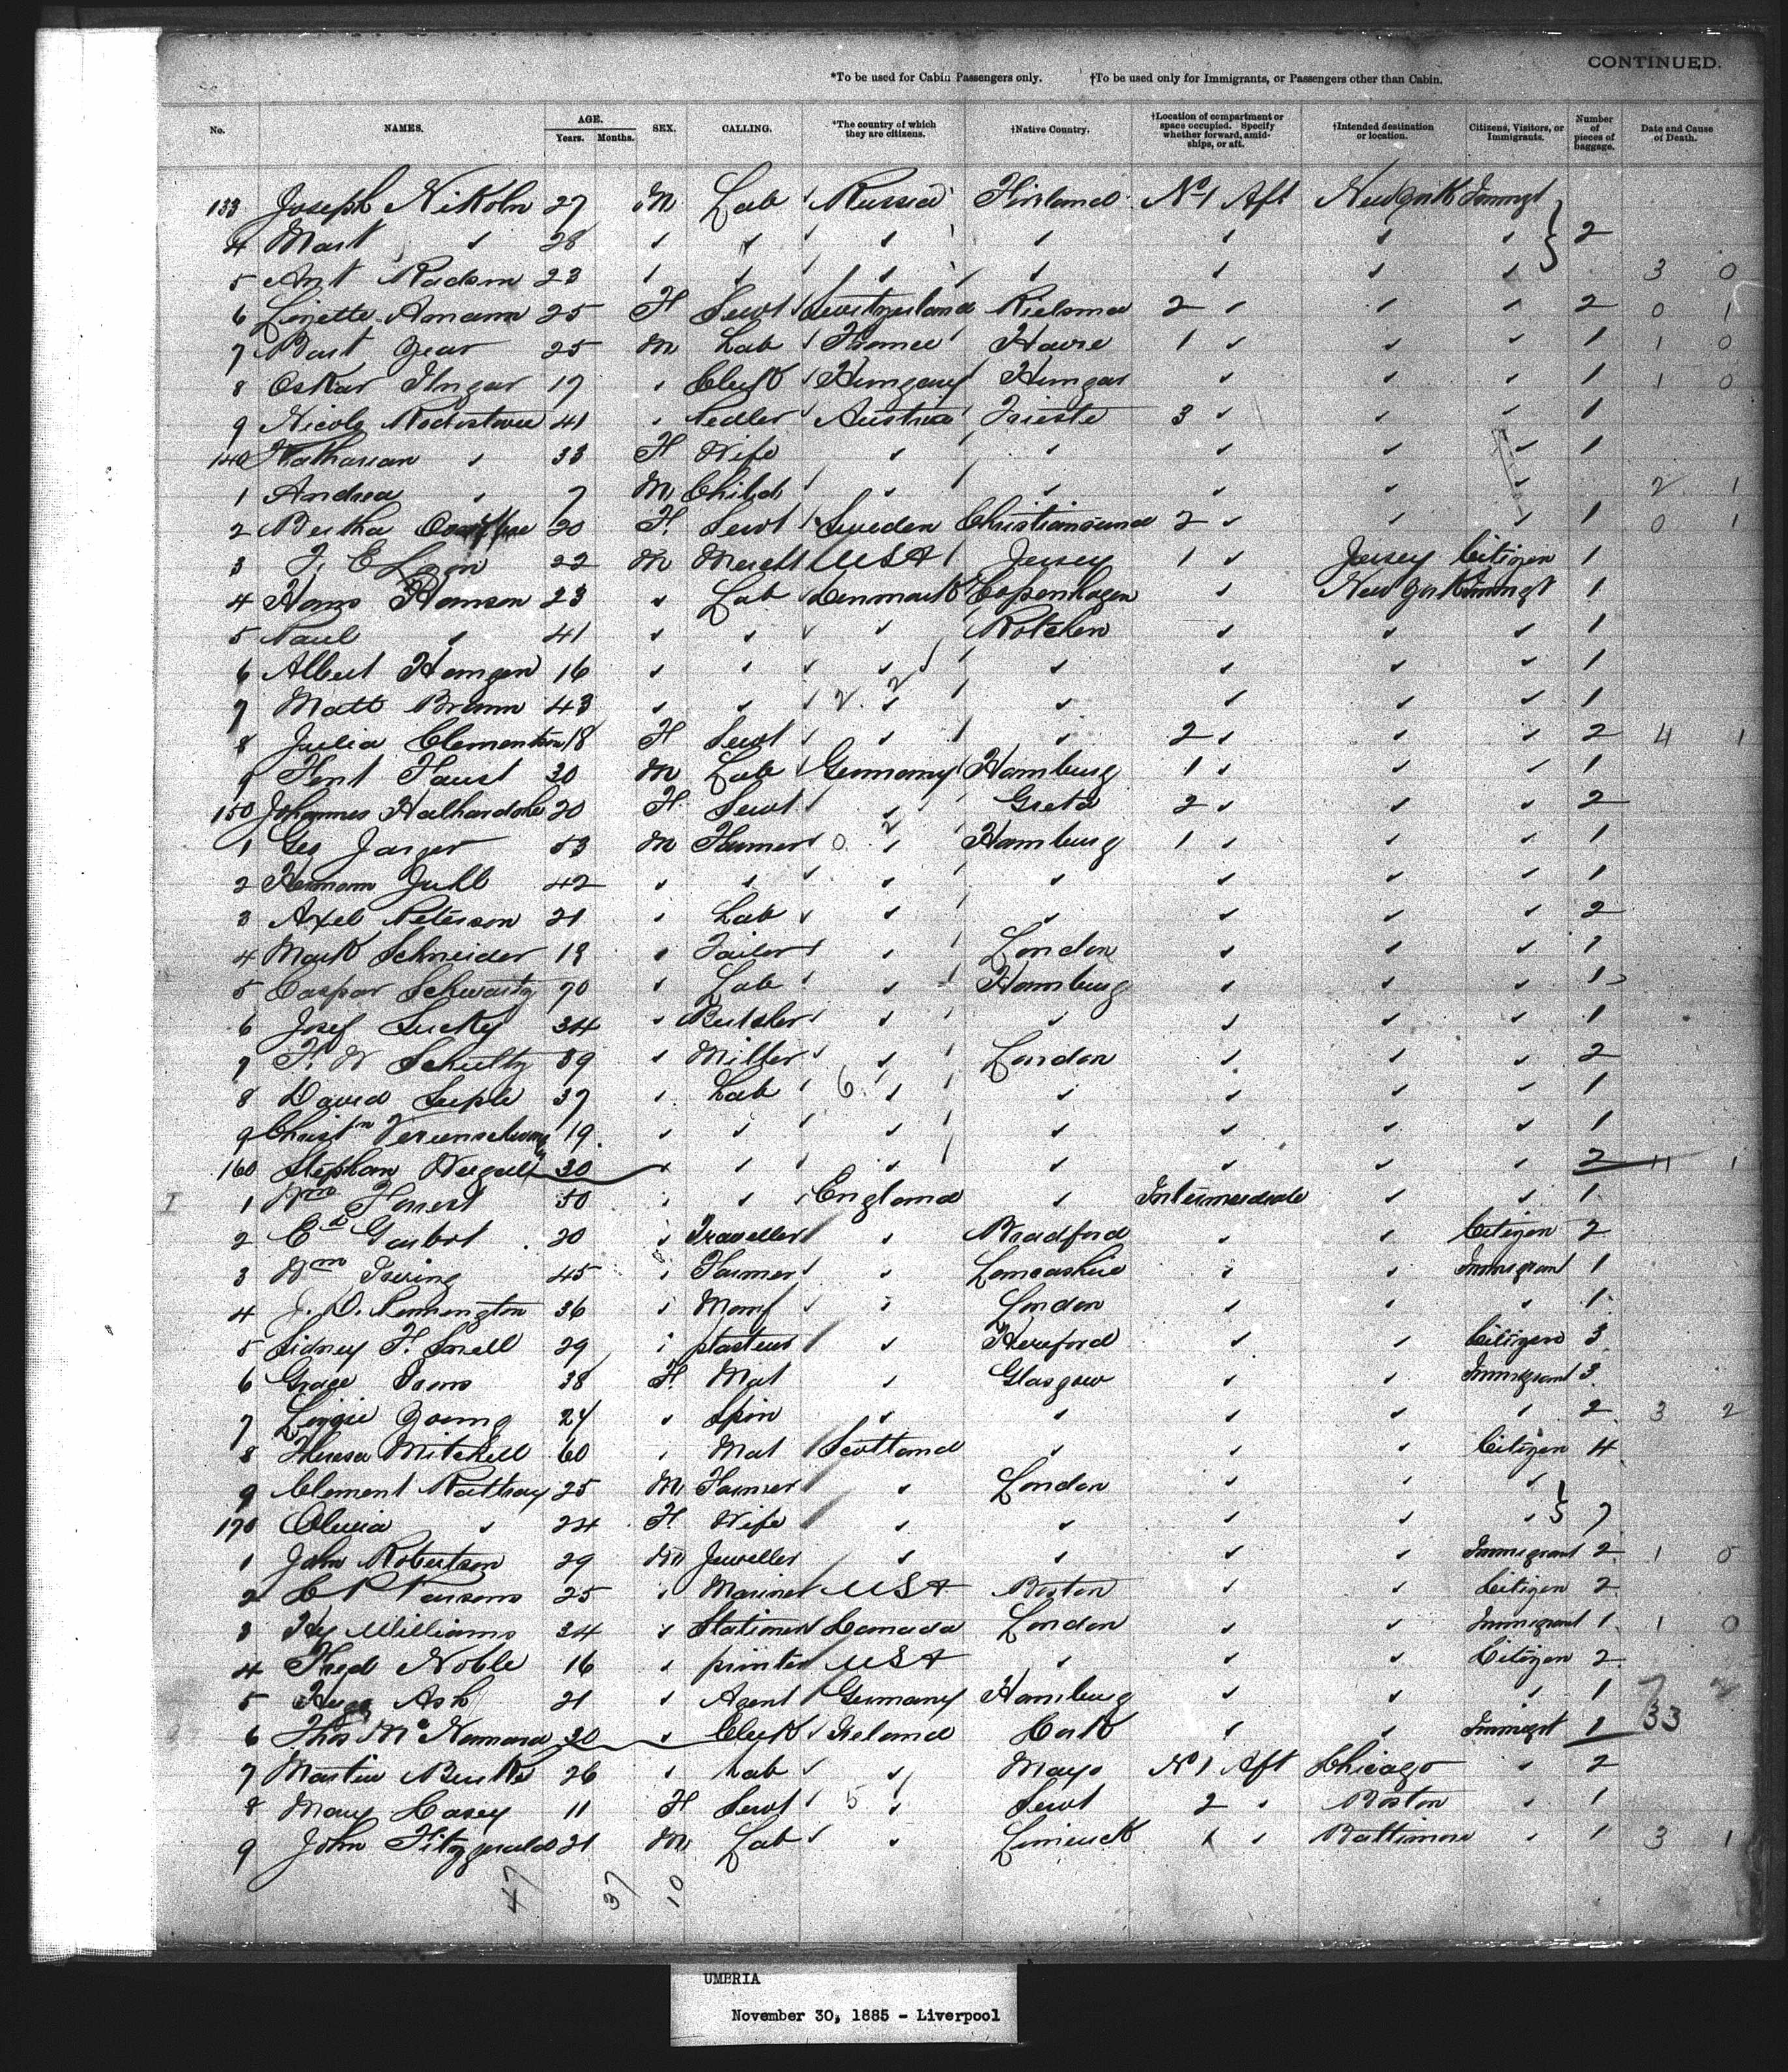 CONTINUED.
*To be used for Cabin Passengers only. †To be used only for Immigrants, or Passengers other than Cabin.
No. NAMES. AGE. Years. Months. SEX. CALLING. *The country of which they are citizens. †Native Country. †Location of compartment or space occupied. Specify whether forward, amidships, or aft. †Intended destination or location. Citizens, Visitors, or Immigrants. Number of pieces of baggage. Date and Cause of Death.
133 Joseph Nikoln 27 M Lab Russia Finland No 1 Aft New York Immgt
4 Mart ✓ 28 ✓ ✓ ✓ ✓ ✓ ✓ ✓ 2
5 Ant Radom 23 ✓ ✓ ✓ ✓ ✓ ✓ ✓ 3 0
6 Lizette Amann 25 F Servt Switzerland 2 ✓ ✓ ✓ 2 0 1
7 Bart 25 M Lab France Havre 1 ✓ ✓ ✓ 1 1 0
8 Oskar Ungar 17 ✓ Clerk Hungary Hungar ✓ ✓ ✓ 1 1 0
9 Nicola 41 ✓ Pedler Austria Trieste 3 ✓ ✓ ✓ 1
140 Katharian ✓ 33 F Wife ✓ ✓ ✓ ✓ ✓ 1
1 Andrea ✓ 7 M Child ✓ ✓ ✓ ✓ ✓ 2 1
2 Bertha 20 F Servt Sweden Christiansund 2 ✓ ✓ ✓ 1 0 1
3 F. E Leon 22 M Mercht USA Jersey 1 ✓ Jersey Citizen 1
4 Hans Hansen 23 ✓ Lab Denmark Copenhagen ✓ New York Immgt 1
5 Paul ✓ 41 ✓ ✓ ✓ Rotchen ✓ ✓ ✓ 1
6 Albert Hangen 16 ✓ ✓ ✓ ✓ ✓ ✓ ✓ 1
7 Matt Brann 43 ✓ ✓ 2 2 ✓ ✓ ✓ ✓ ✓ 1
8 Julia Clementson 18 F Servt ✓ ✓ 2 ✓ ✓ ✓ 2 4 1
9 Faust 30 M Lab Germany Hamburg 1 ✓ ✓ ✓ 1
150 Johannes 20 F Servt ✓ Greta 2 ✓ ✓ ✓ 2
1 Geo Jarger 53 M Farmer 0 2 ✓ Hamburg 1 ✓ ✓ ✓ 1
2 Hermann Juhl 42 ✓ ✓ ✓ ✓ ✓ ✓ ✓ 1
3 Axel Peterson 21 ✓ Lab ✓ ✓ ✓ ✓ ✓ 2
4 Mark Schneider 18 ✓ Tailor ✓ London ✓ ✓ ✓ 1
5 Caspar Schwartz 70 ✓ Lab ✓ Hamburg ✓ ✓ ✓ 1
6 Josef Lucky 34 ✓ Butcher ✓ ✓ ✓ ✓ ✓ 1
7 F. W Schultz 39 ✓ Miller ✓ London ✓ ✓ ✓ 2
8 David Seple 37 ✓ Lab 6 ✓ ✓ ✓ ✓ ✓ 1
9 Christn 19 ✓ ✓ ✓ ✓ ✓ ✓ ✓ 1
160 Stephan 30 ✓ ✓ ✓ ✓ ✓ ✓ ✓ 2 11 1
1 Wm Forrest 50 ✓ ✓ England ✓ Intermediate ✓ ✓ 1
2 Ed 20 ✓ Traveller ✓ Bradford ✓ ✓ Citizen 2
3 Wm Irving 45 ✓ Farmer ✓ Lancashire ✓ ✓ Immigrant 1
4 J. D. Remington 36 ✓ Manf ✓ London ✓ ✓ ✓ 1
5 Sidney F. Snell 29 ✓ plasterer ✓ Hereford ✓ ✓ Citizen 3
6 Grace 38 F. Mat ✓ Glasgow ✓ ✓ Immigrant 3
7 Lizzie Young 24 ✓ Spin ✓ ✓ ✓ ✓ ✓ 2 3 2
8 Theresa Mitchell 60 ✓ Mat Scotland ✓ ✓ ✓ Citizen 4
9 Clement Rattray 25 M Farmer ✓ London ✓ ✓ ✓
170 Olivia ✓ 24 F. Wife ✓ ✓ ✓ ✓ ✓ 7
1 John Robertson 29 M Jeweller ✓ ✓ ✓ ✓ Immigrant 2 1 0
2 C P Parsons 25 ✓ Mariner USA Boston ✓ ✓ Citizen 2
3 Hy Williams 34 ✓ Stationer Canada London ✓ ✓ Immigrant 1 1 0
4 Fred Noble 16 ✓ printer USA ✓ ✓ ✓ Citizen 2
5 Hugo Ash 21 ✓ Agent Germany Hamburg ✓ ✓ ✓ 1 7
6 Thos McNamara 30 ✓ Clerk Ireland Cork ✓ ✓ Immigt 1 33
7 Martin Burke 26 ✓ Lab ✓ Mayo No 1 Aft Chicago ✓ 2
8 Mary Casey 11 F Servt 5 ✓ Servt 2 ✓ Boston ✓ 1
9 John Fitzgerald 21 M Lab ✓ Limerick 1 ✓ Baltimore ✓ 1 3 1
47 37 10
UMBRIA
November 30, 1885 - Liverpool